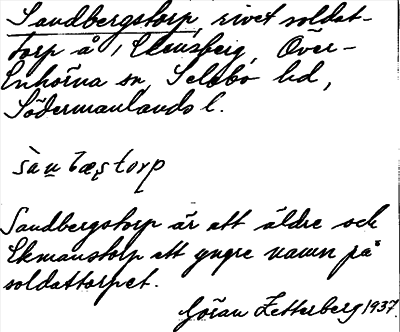 Sandbergstorp, rivet soldat-
torp å 1 Ekensberg, Över-
Enhörna sn Selebo hd,
Södermanlands l.
Sandbergstorp är ett äldre och
Ekmanstorp ett yngre namn på
soldattorpet.
Göran Zetterberg 1937.